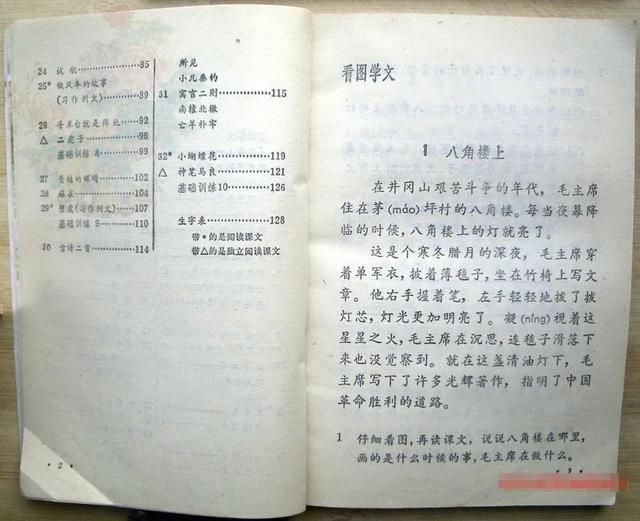 24 试航 85
25* 做风车的故事
(习作例文) 89
26 手术台就是阵地 92
△ 二虎子 96
基础训练8 99
27 青蛙的眼睛 102
28 麻雀 104
29* 壁虎(习作例文) 107
基础训练9 110
30 古诗二首 114
所见
小儿垂钓
31 寓言二则 115
南辕北辙
亡羊补牢
32* 小蝴蝶花 119
△ 神笔马良 121
基础训练10 126
生字表 128
带*的是阅读课文
带△的是独立阅读课文
·2·
看图学文
1 八角楼上
在井冈山艰苦斗争的年代，毛主席
住在茅(máo)坪村的八角楼。每当夜幕降
临的时候，八角楼上的灯就亮了。
这是个寒冬腊月的深夜，毛主席穿
着单军衣，披着薄毯子，坐在竹椅上写文
章。他右手握着笔，左手轻轻地拨了拨
灯芯，灯光更加明亮了。凝(níng)视着这
星星之火，毛主席在沉思，连毯子滑落下
来也没觉察到。就在这盏清油灯下，毛
主席写下了许多光辉著作，指明了中国
革命胜利的道路。
1 仔细看图，再读课文，说说八角楼在哪里，
画的是什么时候的事，毛主席在做什么。
·1·